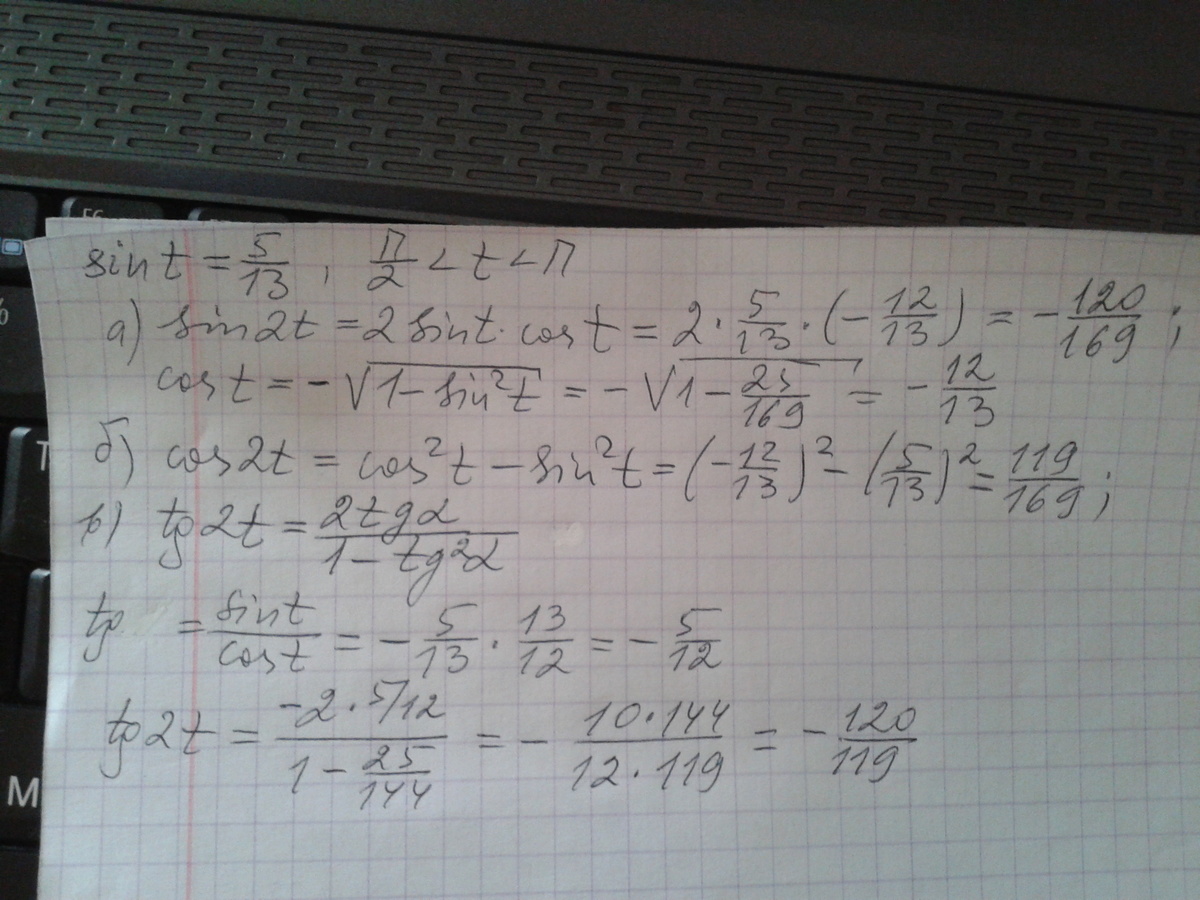 F6
%
T
M
sin t = 5/13 , π/2 < t < π
а) sin2t = 2 sint · cos t = 2 · 5/13 · (- 12/13) = - 120/169 ;
cos t = - √(1 - sin²t) = - √(1 - 25/169) = - 12/13
б) cos2t = cos²t - sin²t = (- 12/13)² - (5/13)² = 119/169 ;
в) tg 2t = 2tgα/(1 - tg²α)
tg = sint/cost = - 5/13 · 13/12 = - 5/12
tg 2t = (-2 · 5/12)/(1 - 25/144) = - (10·144)/(12·119) = - 120/119